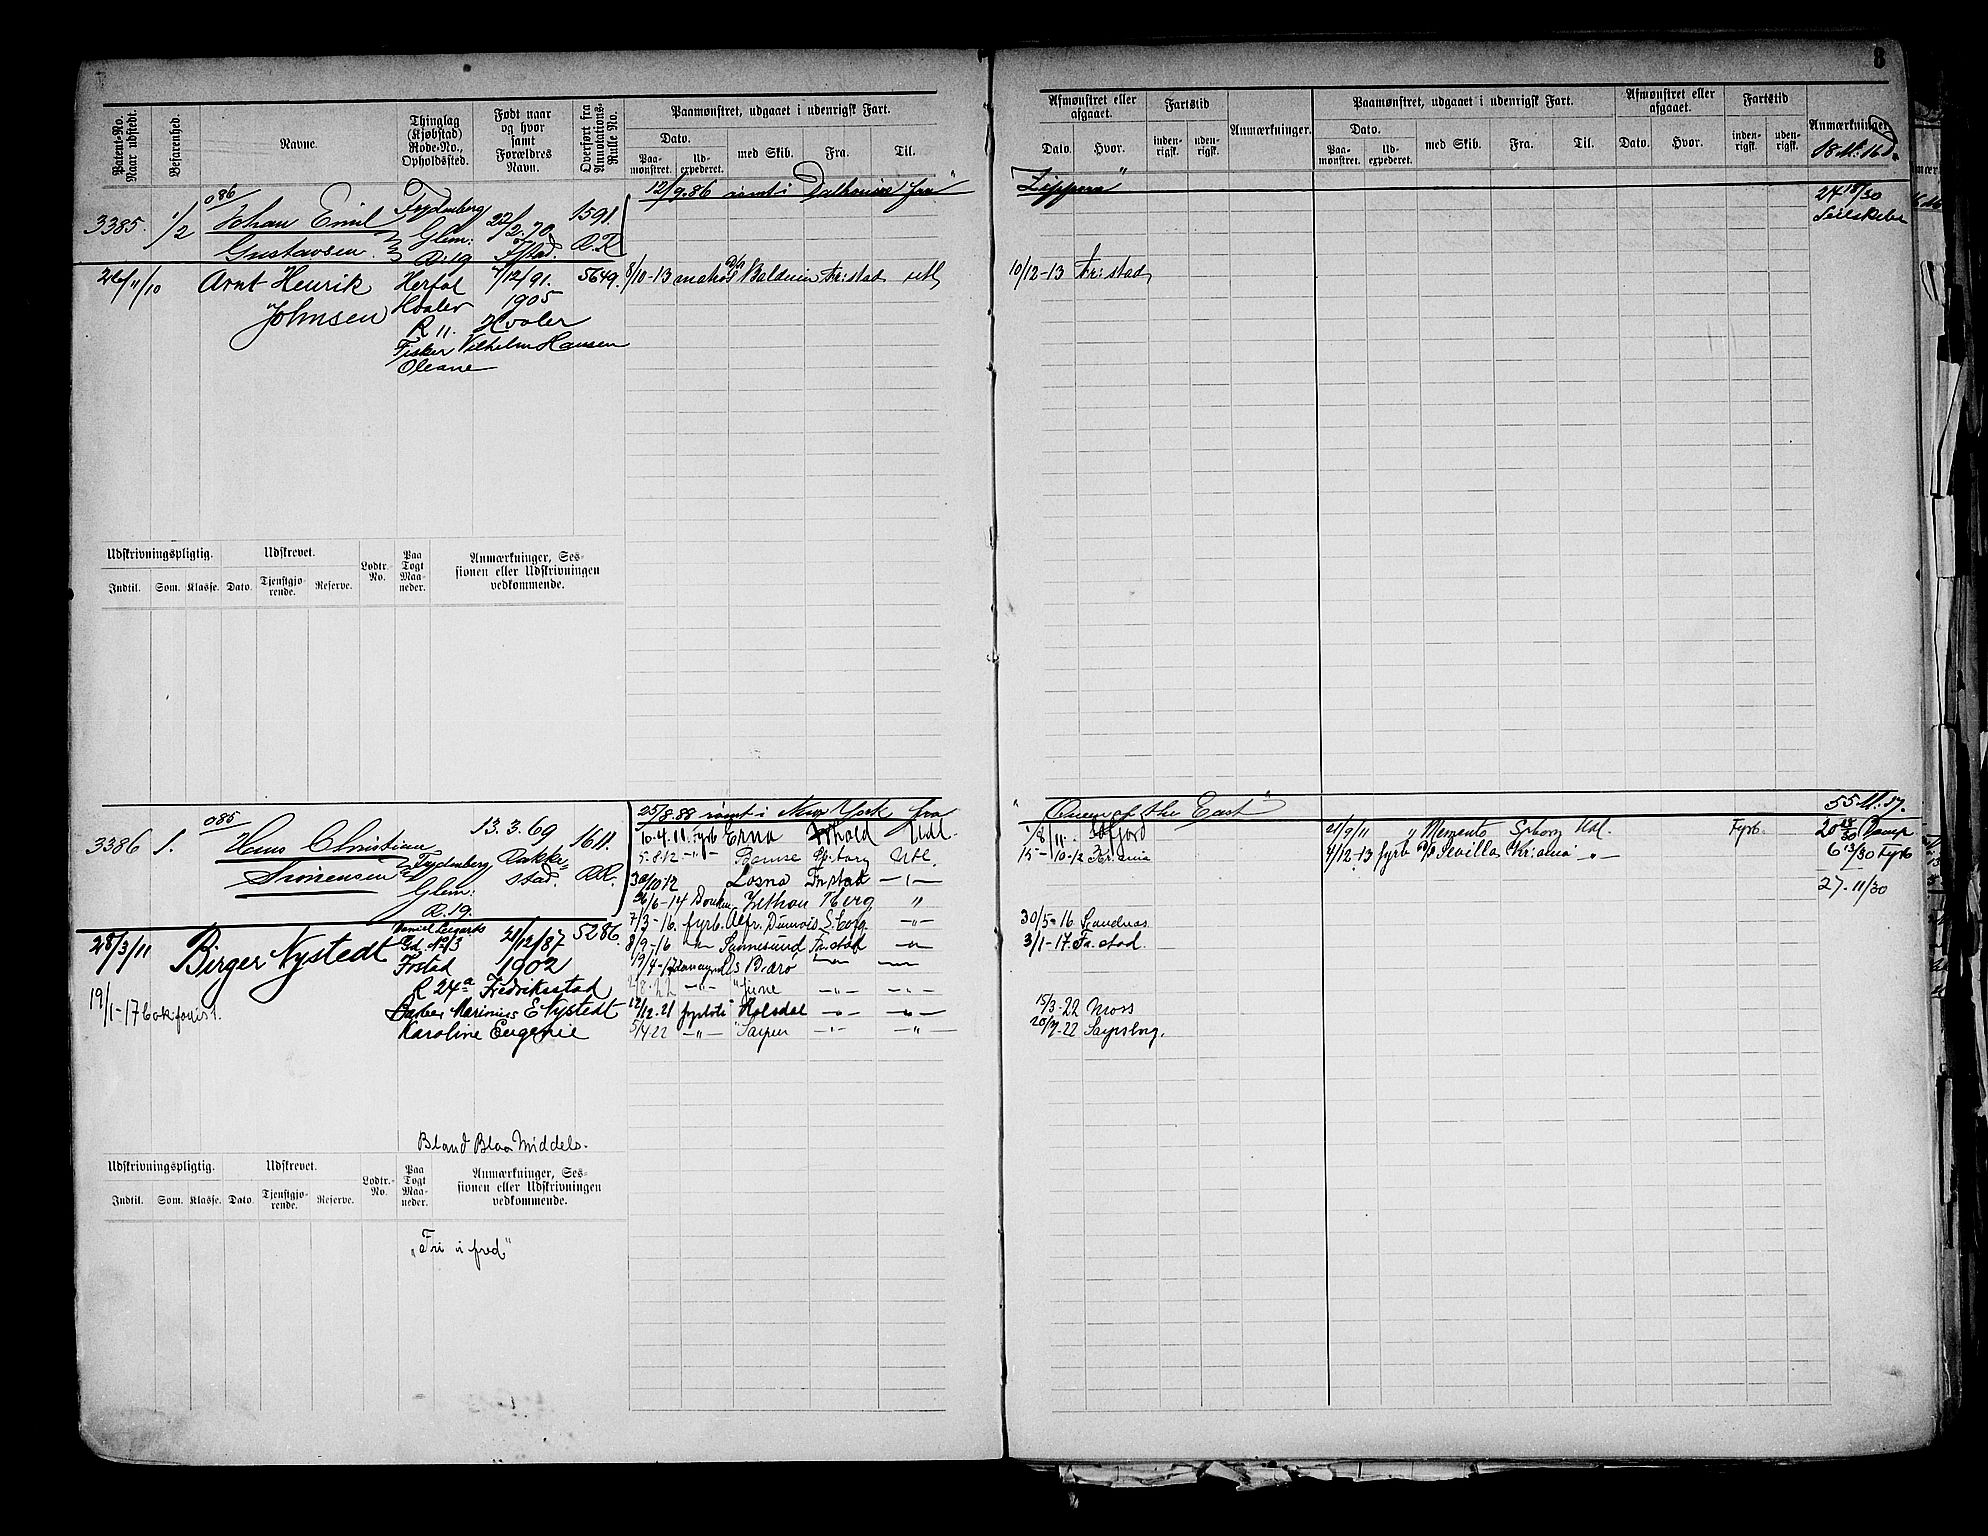 8
Patent-No. Naar udstedt.
Befarenhed.
Navne.
Thinglag (Kjøbstad) Rode-No., Opholdssted.
Født naar og hvor samt Forældres Navn.
Overført fra Annotations-Rulle No.
Paamønstret, udgaaet i udenrigsk Fart.
Dato.
Paamønstret.
Udexpederet.
med Skib.
Fra.
Til.
Afmønstret eller afgaaet.
Dato.
Hvor.
Fartstid
indenrigsk.
udenrigsk.
Anmærkninger.
Paamønstret, udgaaet i udenrigsk Fart.
Dato.
Paamønstret.
Udexpederet.
med Skib.
Fra.
Til.
Afmønstret eller afgaaet.
Dato.
Hvor.
Fartstid
indenrigsk.
udenrigsk.
Anmærkninger
18 M. 16 d.
12/9.86 rømt i Dalhousie fra "Zippora"
24 18/30
Seilskibe
3385. 1/2 086 Johan Emil Gustavsen
Glem: R. 19
22/2.70. Fstad.
1591. A.R.
26/11/10 Arnt Henrik Johnsen
Herføl Hvaler R 11.
7/12/91. 1905 Hvaler
Fisker Vilhelm Hansen
Oleane
5649.
8/10-13 D/S Baldwin Fr:stad Utl
10/12-13 Fr:stad
Udskrivningspligtig.
Indtil. Som. Klasse.
Udskrevet.
Dato. Tjenstgjørende. Reserve.
Lodtr. No.
Paa Togt Maaneder.
Anmærkninger, Sessionen eller Udskrivningen vedkommende.
25/8.88 rømt i New York fra "Queen of the East"
55 M. 17.
3386 1. 085 Hans Christian Sørensen
Glem: R. 19.
13.3.69 Rakkestad.
1611. A.R.
10-4.11. Fyrb Erna Frhald Udl.
5.8.12 -"- Utl.
30/10 12 Losna Frstad -"-
26/6-14 "
7/3-16. fyrb. S.borg. -"-
8/9-16 -"- Sannesund Fr.stad -"-
19/4-17 D/S Bjerø -"- -"-
-"- "June -"- -"-
12/12-21 -"- -"-
5/4 22 -"- -"- -"-
1/8 11.
15-10-12 Kr:ania
30/5-16 Sandnes.
3/1-17 Fr.stad.
15/3-22 Moss
20/7-22 Sarpsborg.
21/9/11 " Memento Sp:borg Udl. Fyrb.
4/12-13 fyrb D/S Sevilla Kr:ania -"-
20 Damp
6 13/30 Fyrb
27-11/30
28/3/11 Birger Nystedt
Gd. No 3
Frstad
R 24a
21/12/87
1902
Fredriksstad
Marinius E Nystedt
Karoline Eugenie
5286
19/1-17
Bland Blaa Middels.
Udskrivningspligtig.
Indtil. Som. Klasse.
Udskrevet.
Dato. Tjenstgjørende. Reserve.
Lodtr. No.
Paa Togt Maaneder.
Anmærkninger, Sessionen eller Udskrivningen vedkommende.
"Fri i fred"